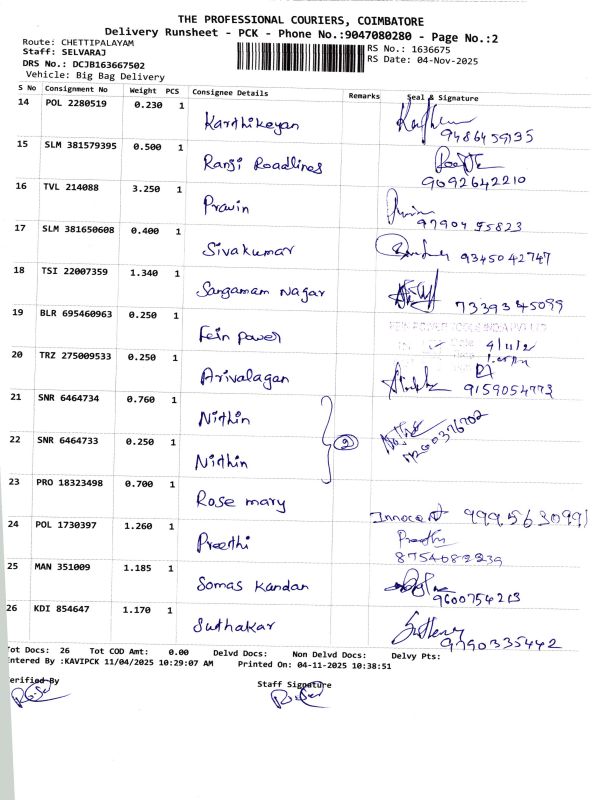 THE PROFESSIONAL COURIERS, COIMBATORE
Delivery Runsheet - PCK - Phone No.:9047080280 - Page No.:2
Route: CHETTIPALAYAM
Staff: SELVARAJ
RS No.: 1636675
DRS No.: DCJB163667502
RS Date: 04-Nov-2025
Vehicle: Big Bag Delivery
S No Consignment No Weight PCS Consignee Details Remarks Seal & Signature
14 POL 2280519 0.230 1 Karthikeyan
9486459135
15 SLM 381579395 0.500 1 Ranji Roadlines
9092642210
16 TVL 214088 3.250 1 Pravin
97904 95823
17 SLM 381650608 0.400 1 Sivakumar 9345042747
18 TSI 22007359 1.340 1 Sangamam Nagar 7339345099
19 BLR 695460963 0.250 1 Fein power
FEIN POWER TOOLS INDIA PVT LTD
20 TRZ 275009533 0.250 1 Arivalagan 9159054773
21 SNR 6464734 0.760 1 Nithin
2
22 SNR 6464733 0.250 1 Nithin
23 PRO 18323498 0.700 1 Rose mary
Innocent
24 POL 1730397 1.260 1 Preethi
Preethi
8754082239
25 MAN 351009 1.185 1 Somas Kandan
9600754213
26 KDI 854647 1.170 1 Suthakar
9790335442
Tot Docs: 26 Tot COD Amt: 0.00 Delvd Docs: Non Delvd Docs: Delvy Pts:
Entered By :KAVIPCK 11/04/2025 10:29:07 AM Printed On: 04-11-2025 10:38:51
erified By Staff Signature